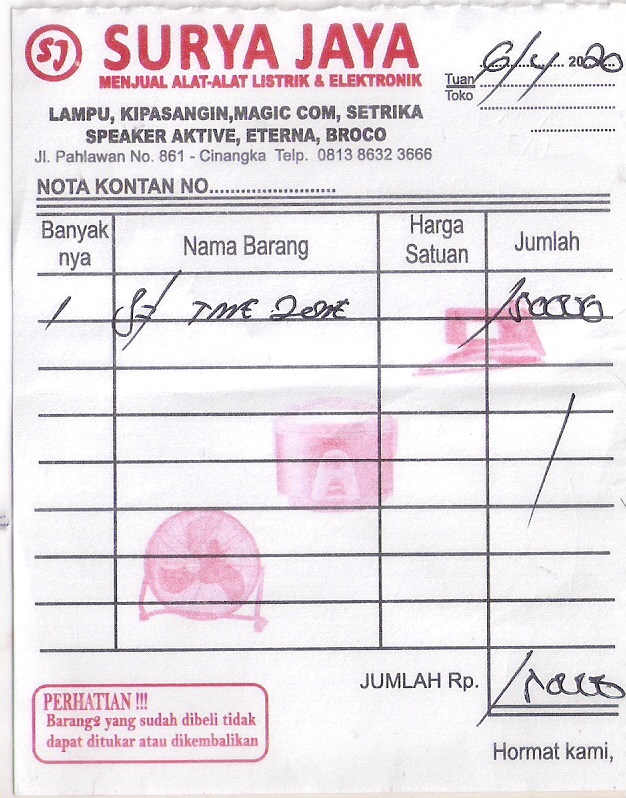 SJ SURYA JAYA
MENJUAL ALAT-ALAT LISTRIK & ELEKTRONIK
LAMPU, KIPASANGIN,MAGIC COM, SETRIKA
SPEAKER AKTIVE, ETERNA, BROCO
Jl. Pahlawan No. 861 - Cinangka Telp. 0813 8632 3666
6/4 2020
Tuan
Toko
NOTA KONTAN NO.........................
Banyak nya Nama Barang Harga Satuan Jumlah
1
JUMLAH Rp.
PERHATIAN !!!
Barang2 yang sudah dibeli tidak
dapat ditukar atau dikembalikan
Hormat kami,